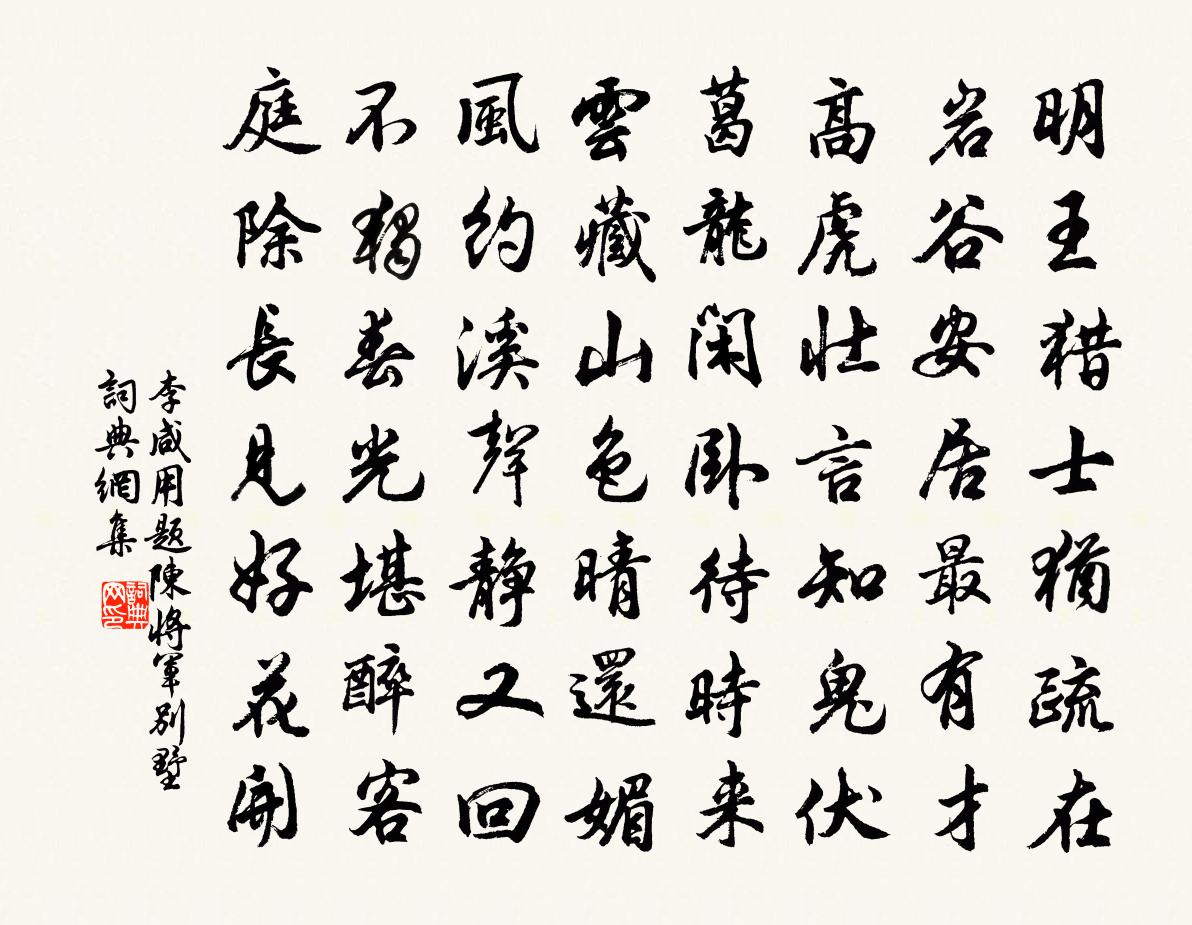 明王猎士猶疏在
岩谷安居最有才
高虎壯言知鬼伏
葛龍闲卧待時来
雲藏山色晴還媚
風約溪聲静又回
不獨春光堪醉客
庭除長見好花開
李咸用题陳將軍别墅
詞典網集
詞典网印